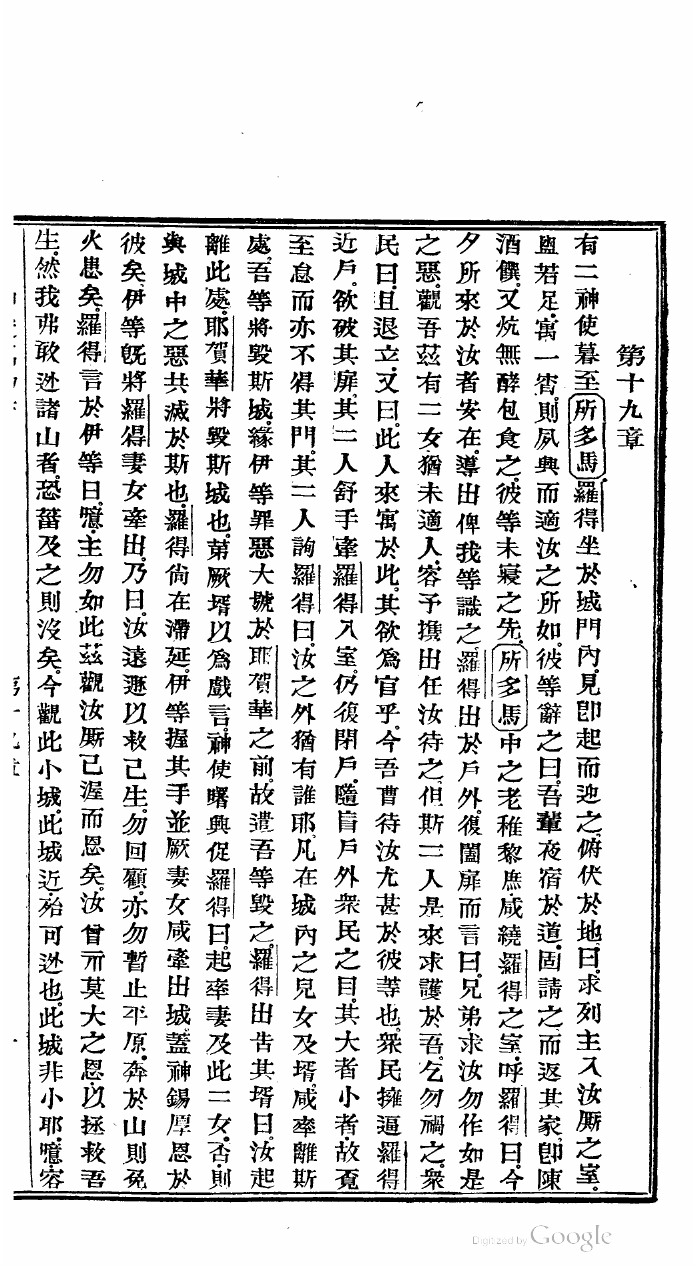 第十九章
有二神使暮至所多馬羅得坐於城門內見卽起而迎之俯伏於地曰求列主入汝厮之室
盥若足寓一宵則夙興而適汝之所如彼等辭之曰吾輩夜宿於道固請之而返其家卽陳
酒饌又炕無酵包食之彼等未寢之先所多馬中之老稚黎庶咸繞羅得之室呼羅得曰今
夕所來於汝者安在導出俾我等識之羅得出於戶外復闔扉而言曰兄弟求汝勿作如是
之惡觀吾茲有二女猶未適人容予擕出任汝待之但斯二人是來求護於吾乞勿禍之衆
民曰且退立又曰此人來寓於此其欲爲官乎今吾曹待汝尤甚於彼等也衆民擁逼羅得
近戶欲破其扉其二人舒手牽羅得入室仍復閉戶隨盲戶外衆民之目其大者小者故覔
至怠而亦不得其門其二人詢羅得曰汝之外猶有誰耶凡在城內之兒女及壻咸率離斯
處吾等將毀斯城緣伊等罪惡大號於耶賀華之前故遣吾等毀之羅得出告其壻曰汝起
離此處耶賀華將毀斯城也第厥壻以爲戲言神使曙興促羅得曰起率妻及此二女否則
與城中之惡共滅於斯也羅得尙在滯延伊等握其手並厥妻女咸牽出城蓋神錫厚恩於
彼矣伊等旣將羅得妻女牽出乃曰汝遠遯以救己生勿回顧亦勿暫止平原奔於山則免
火患矣羅得言於伊等曰噫主勿如此茲觀汝厮已渥而恩矣汝曾示莫大之恩以拯救吾
生然我弗敢迯諸山者恐菑及之則沒矣今觀此小城此城近殆可迯也此城非小耶噫容
第十九章